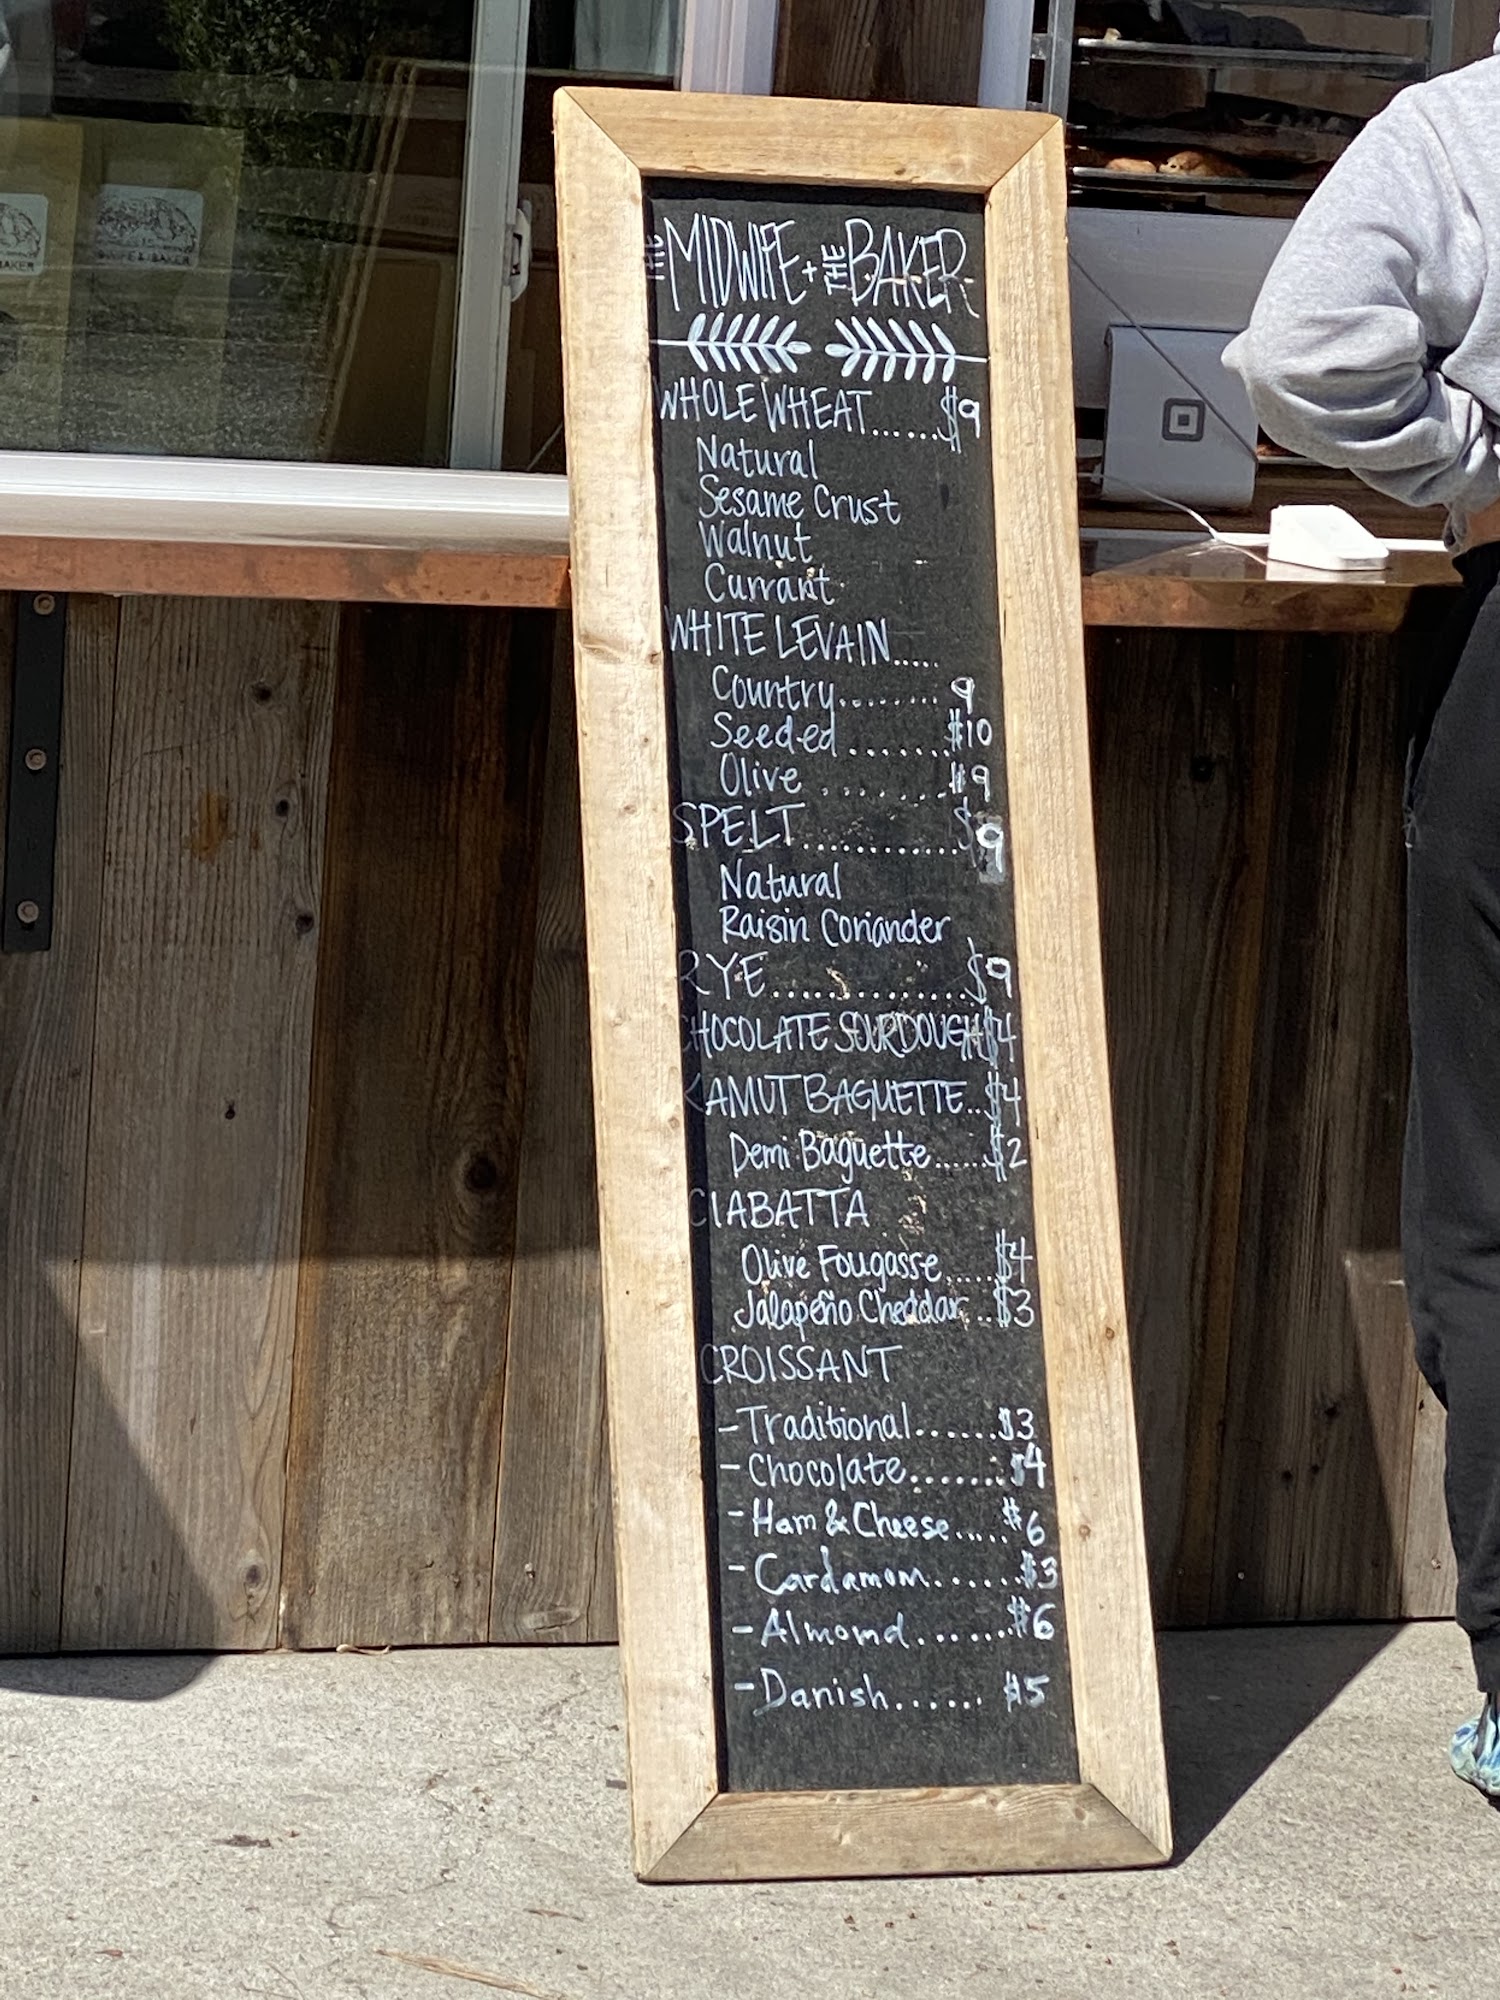 THE MIDWIFE + THE BAKER
WHOLE WHEAT......$9
Natural
Sesame Crust
Walnut
Currant
WHITE LEVAIN.....
Country........ 9
Seeded.......$10
Olive ........$9
SPELT............$9
Natural
Raisin Coriander
RYE..............$9
CHOCOLATE SOURDOUGH $4
KAMUT BAGUETTE...$4
Demi Baguette......$2
CIABATTA
Olive Fougasse.....$4
Jalapeño Cheddar...$3
CROISSANT
- Traditional......$3
- Chocolate.......$4
- Ham & Cheese.....$6
- Cardamom......$3
- Almond.......$6
- Danish...... $5
BAKER
WIFE & BAKER